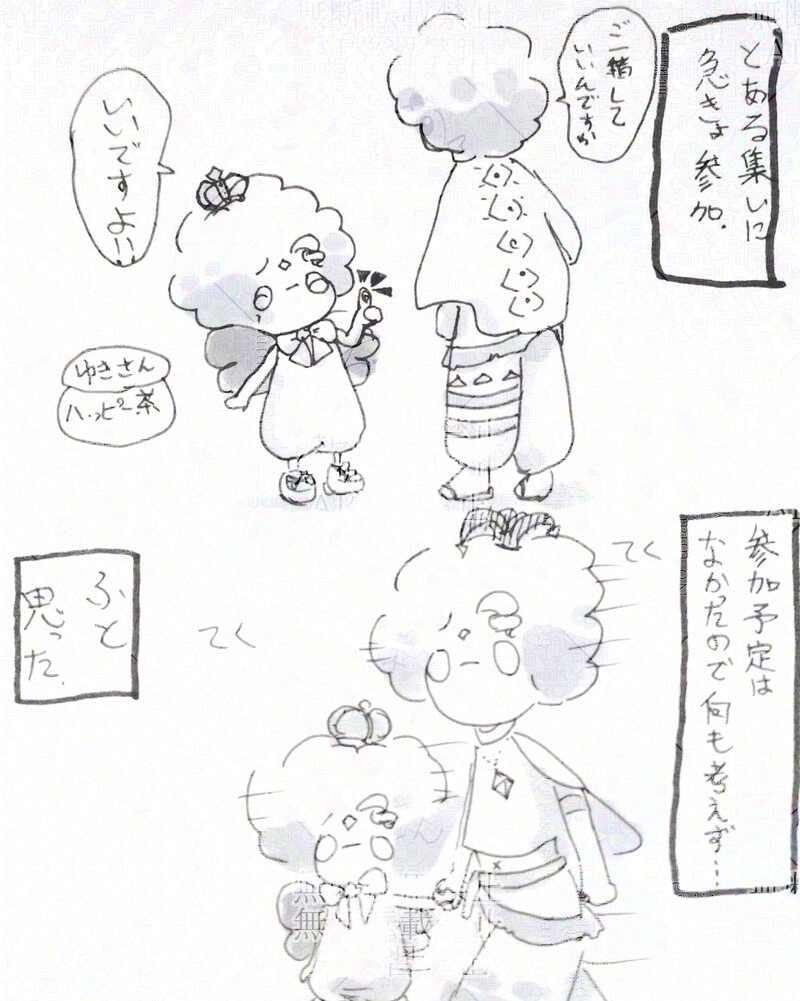 とある集いに
急きょ参加.
ご一緒して
いいんですか
いいですよ!!
ゆきさん
ハッピー茶
参加予定は
なかったので何も考えず…
てく
てく
ふと
思った.